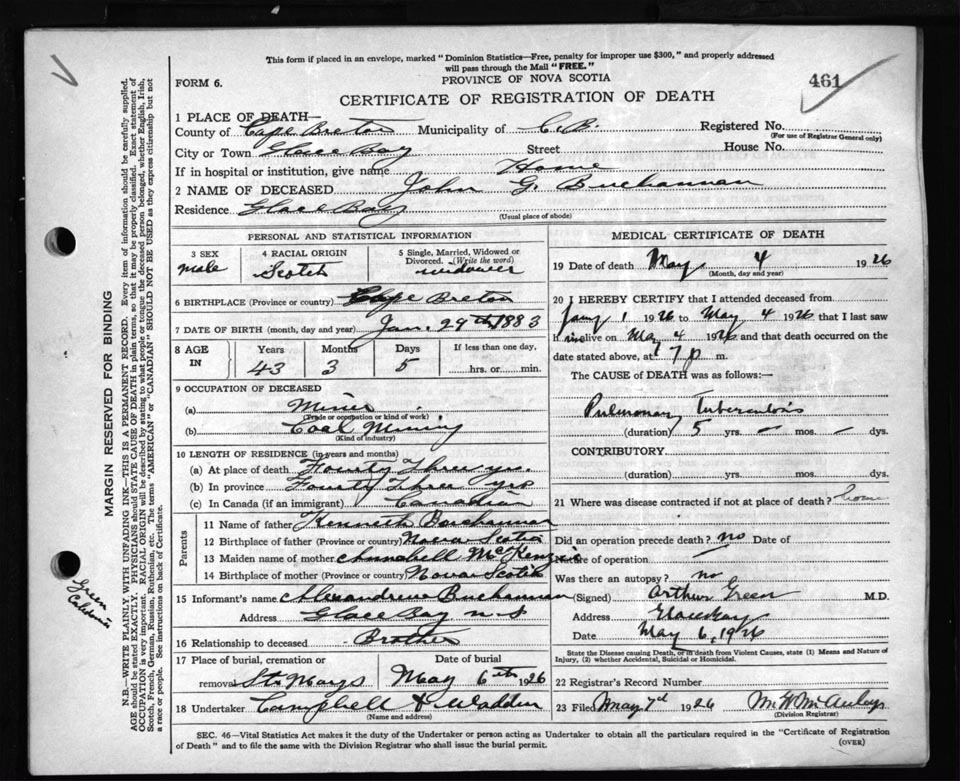 This form if placed in an envelope, marked "Dominion Statistics—Free, penalty for improper use $300," and properly addressed
will pass through the Mail "FREE."
FORM 6.
PROVINCE OF NOVA SCOTIA
461
CERTIFICATE OF REGISTRATION OF DEATH
1 PLACE OF DEATH—
County of Cape Breton Municipality of C.B. Registered No.
(For use of Registrar General only)
City or Town Glace Bay Street House No.
If in hospital or institution, give name Home
2 NAME OF DECEASED John G. Buchannan
Residence Glace Bay
(Usual place of abode)
PERSONAL AND STATISTICAL INFORMATION
3 SEX male
4 RACIAL ORIGIN Scotch
5 Single, Married, Widowed or Divorced. (Write the word) widower
6 BIRTHPLACE (Province or country) Cape Breton
7 DATE OF BIRTH (month, day and year) Jan. 29th 1883
8 AGE IN Years 43 Months 3 Days 5 If less than one day, hrs. or min.
9 OCCUPATION OF DECEASED
(a) Miner
(Trade or occupation or kind of work)
(b) Coal Mining
(Kind of industry)
10 LENGTH OF RESIDENCE (in years and months)
(a) At place of death Fourty Three yrs.
(b) In province Fourty Three yrs
(c) In Canada (if an immigrant) Canadian
Parents
11 Name of father Kenneth Buchannan
12 Birthplace of father (Province or country) Nova Scotia
13 Maiden name of mother Annabell McKenzie
14 Birthplace of mother (Province or country) Nova Scotia
15 Informant's name Buchannan
Address Glace Bay N.S
16 Relationship to deceased Brother
17 Place of burial, cremation or removal St. Marys Date of burial May 6th 1926
18 Undertaker Campbell & Wadden
(Name and address)
MEDICAL CERTIFICATE OF DEATH
19 Date of death May 4 1926
(Month, day and year)
20 I HEREBY CERTIFY that I attended deceased from
Jany 1 1926 to May 4 1926 that I last saw
him alive on May 4 1926 and that death occurred on the
date stated above, at 7 p m.
The CAUSE of DEATH was as follows:—
Pulmonary Tuberculosis
(duration) 5 yrs. — mos. — dys.
CONTRIBUTORY
(duration) yrs. mos. dys.
21 Where was disease contracted if not at place of death? home
Did an operation precede death? no Date of
Nature of operation
Was there an autopsy? no
(Signed) Arthur Green M.D.
Address Glace Bay
Date May 6, 1926
State the Disease causing Death, or in death from Violent Causes, state (1) Means and Nature of
Injury, (2) whether Accidental, Suicidal or Homicidal.
22 Registrar's Record Number
23 Filed May 7d 1926 M. W. McAulay
(Division Registrar)
SEC. 46—Vital Statistics Act makes it the duty of the Undertaker or person acting as Undertaker to obtain all the particulars required in the "Certificate of Registration
of Death" and to file the same with the Division Registrar who shall issue the burial permit.
(OVER)
MARGIN RESERVED FOR BINDING
N.B.—WRITE PLAINLY WITH UNFADING INK—THIS IS A PERMANENT RECORD. Every item of information should be carefully supplied.
AGE should be stated EXACTLY. PHYSICIANS should STATE CAUSE OF DEATH in plain terms, so that it may be properly classified. Exact statement of
OCCUPATION is very important. RACIAL ORIGIN will be described by stating to what people or tongue the deceased person belonged, whether English, Irish,
Scotch, French, German, Russian, Ruthenian, etc. The terms "AMERICAN" or "CANADIAN" SHOULD NOT BE USED as they express citizenship but not
a race or people. See instructions on back of Certificate.
Green